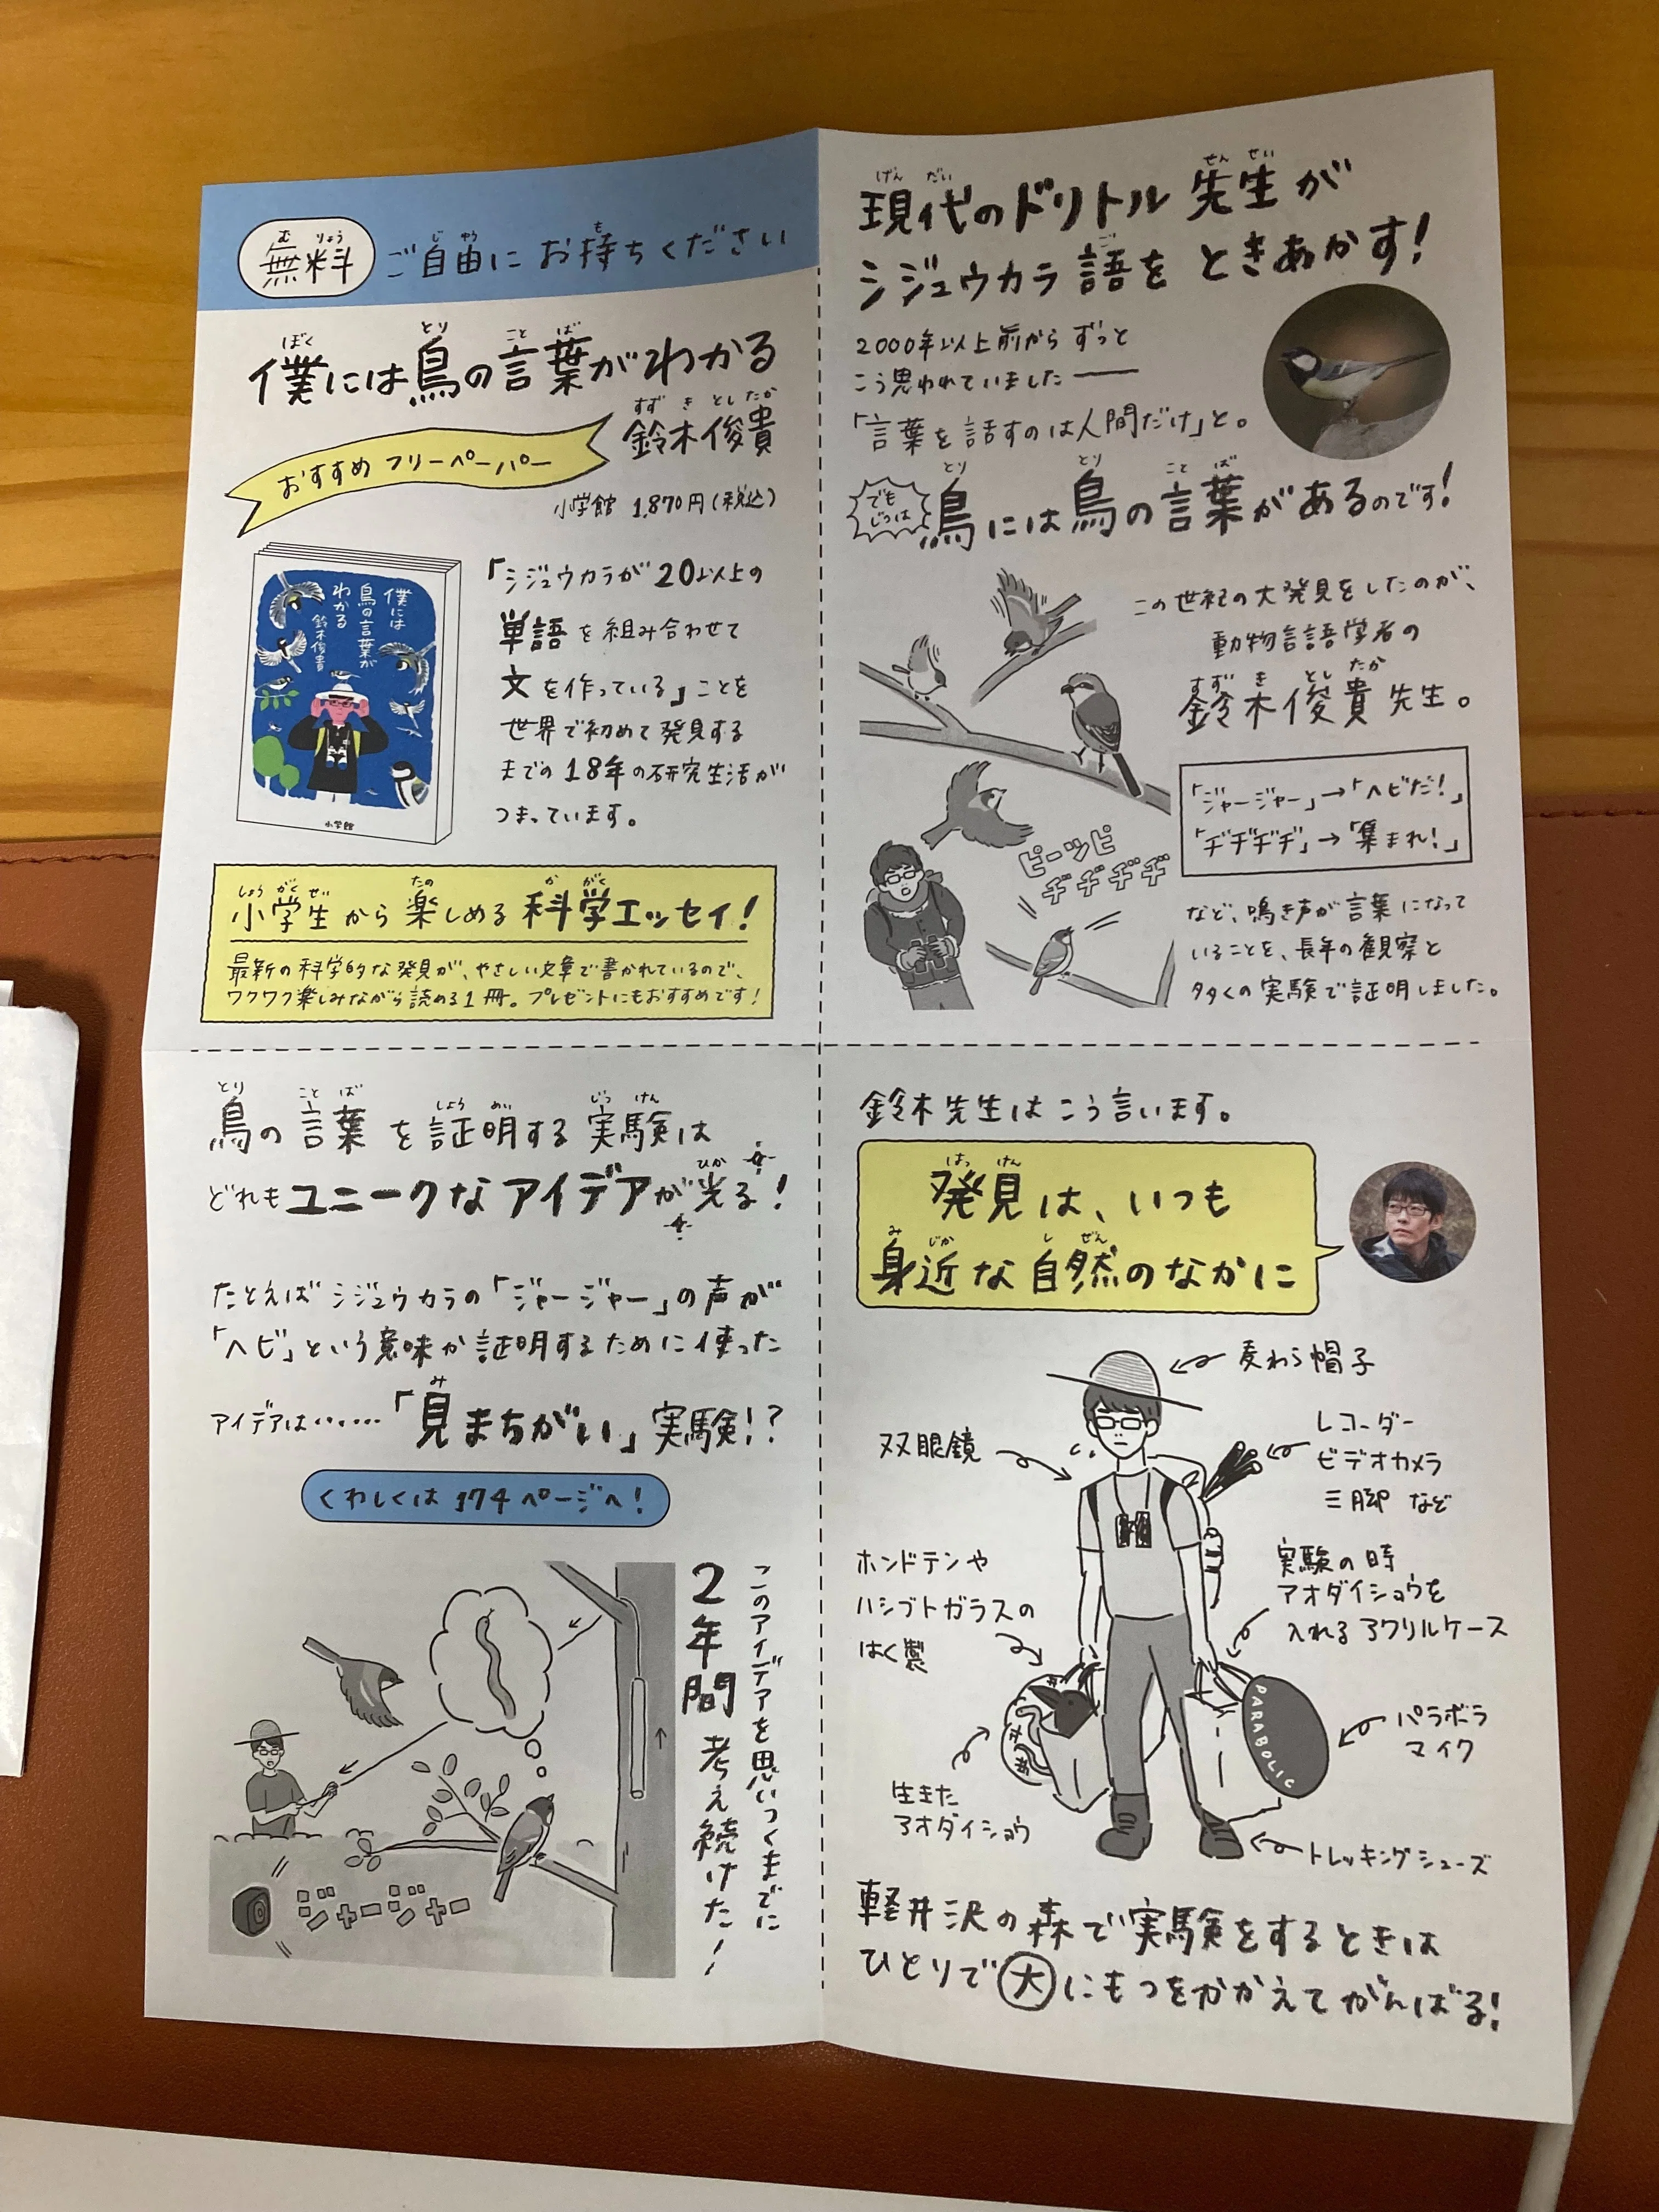 無料 ご自由にお持ちください
僕には鳥の言葉がわかる
鈴木俊貴
おすすめフリーペーパー
小学館 1,870円(税込)
僕には
鳥の言葉が
わかる
鈴木俊貴
小学館
「シジュウカラが20以上の
単語を組み合わせて
文を作っている」ことを
世界で初めて発見する
までの18年の研究生活が
つまっています。
小学生から楽しめる科学エッセイ!
最新の科学的な発見が、やさしい文章で書かれているので、
ワクワク楽しみながら読める1冊。プレゼントにもおすすめです!
現代のドリトル先生が
シジュウカラ語をときあかす!
2000年以上前からずっと
こう思われていました──
「言葉を話すのは人間だけ」と。
でも
じつは
鳥には鳥の言葉があるのです!
この世紀の大発見をしたのが、
動物言語学者の
鈴木俊貴先生。
「ジャージャー」→「ヘビだ!」
「ヂヂヂヂ」→「集まれ!」
ピーツピ
ヂヂヂヂ
など、鳴き声が言葉になって
いることを、長年の観察と
多くの実験で証明しました。
鳥の言葉を証明する実験は
どれもユニークなアイデアが光る!
たとえばシジュウカラの「ジャージャー」の声が
「ヘビ」という意味か証明するために使った
アイデアは……「見まちがい」実験!?
くわしくは174ページへ!
このアイデアを思いつくまでに
2年間考え続けた!
ジャージャー
鈴木先生はこう言います。
発見は、いつも
身近な自然のなかに
麦わら帽子
双眼鏡
レコーダー
ビデオカメラ
三脚 など
ホンドテンや
ハシブトガラスの
はく製
実験の時
アオダイショウを
入れるアクリルケース
PARABOLIC
パラボラ
マイク
生きた
アオダイショウ
トレッキングシューズ
軽井沢の森で実験をするときは
ひとりで大にもつをかかえてがんばる!